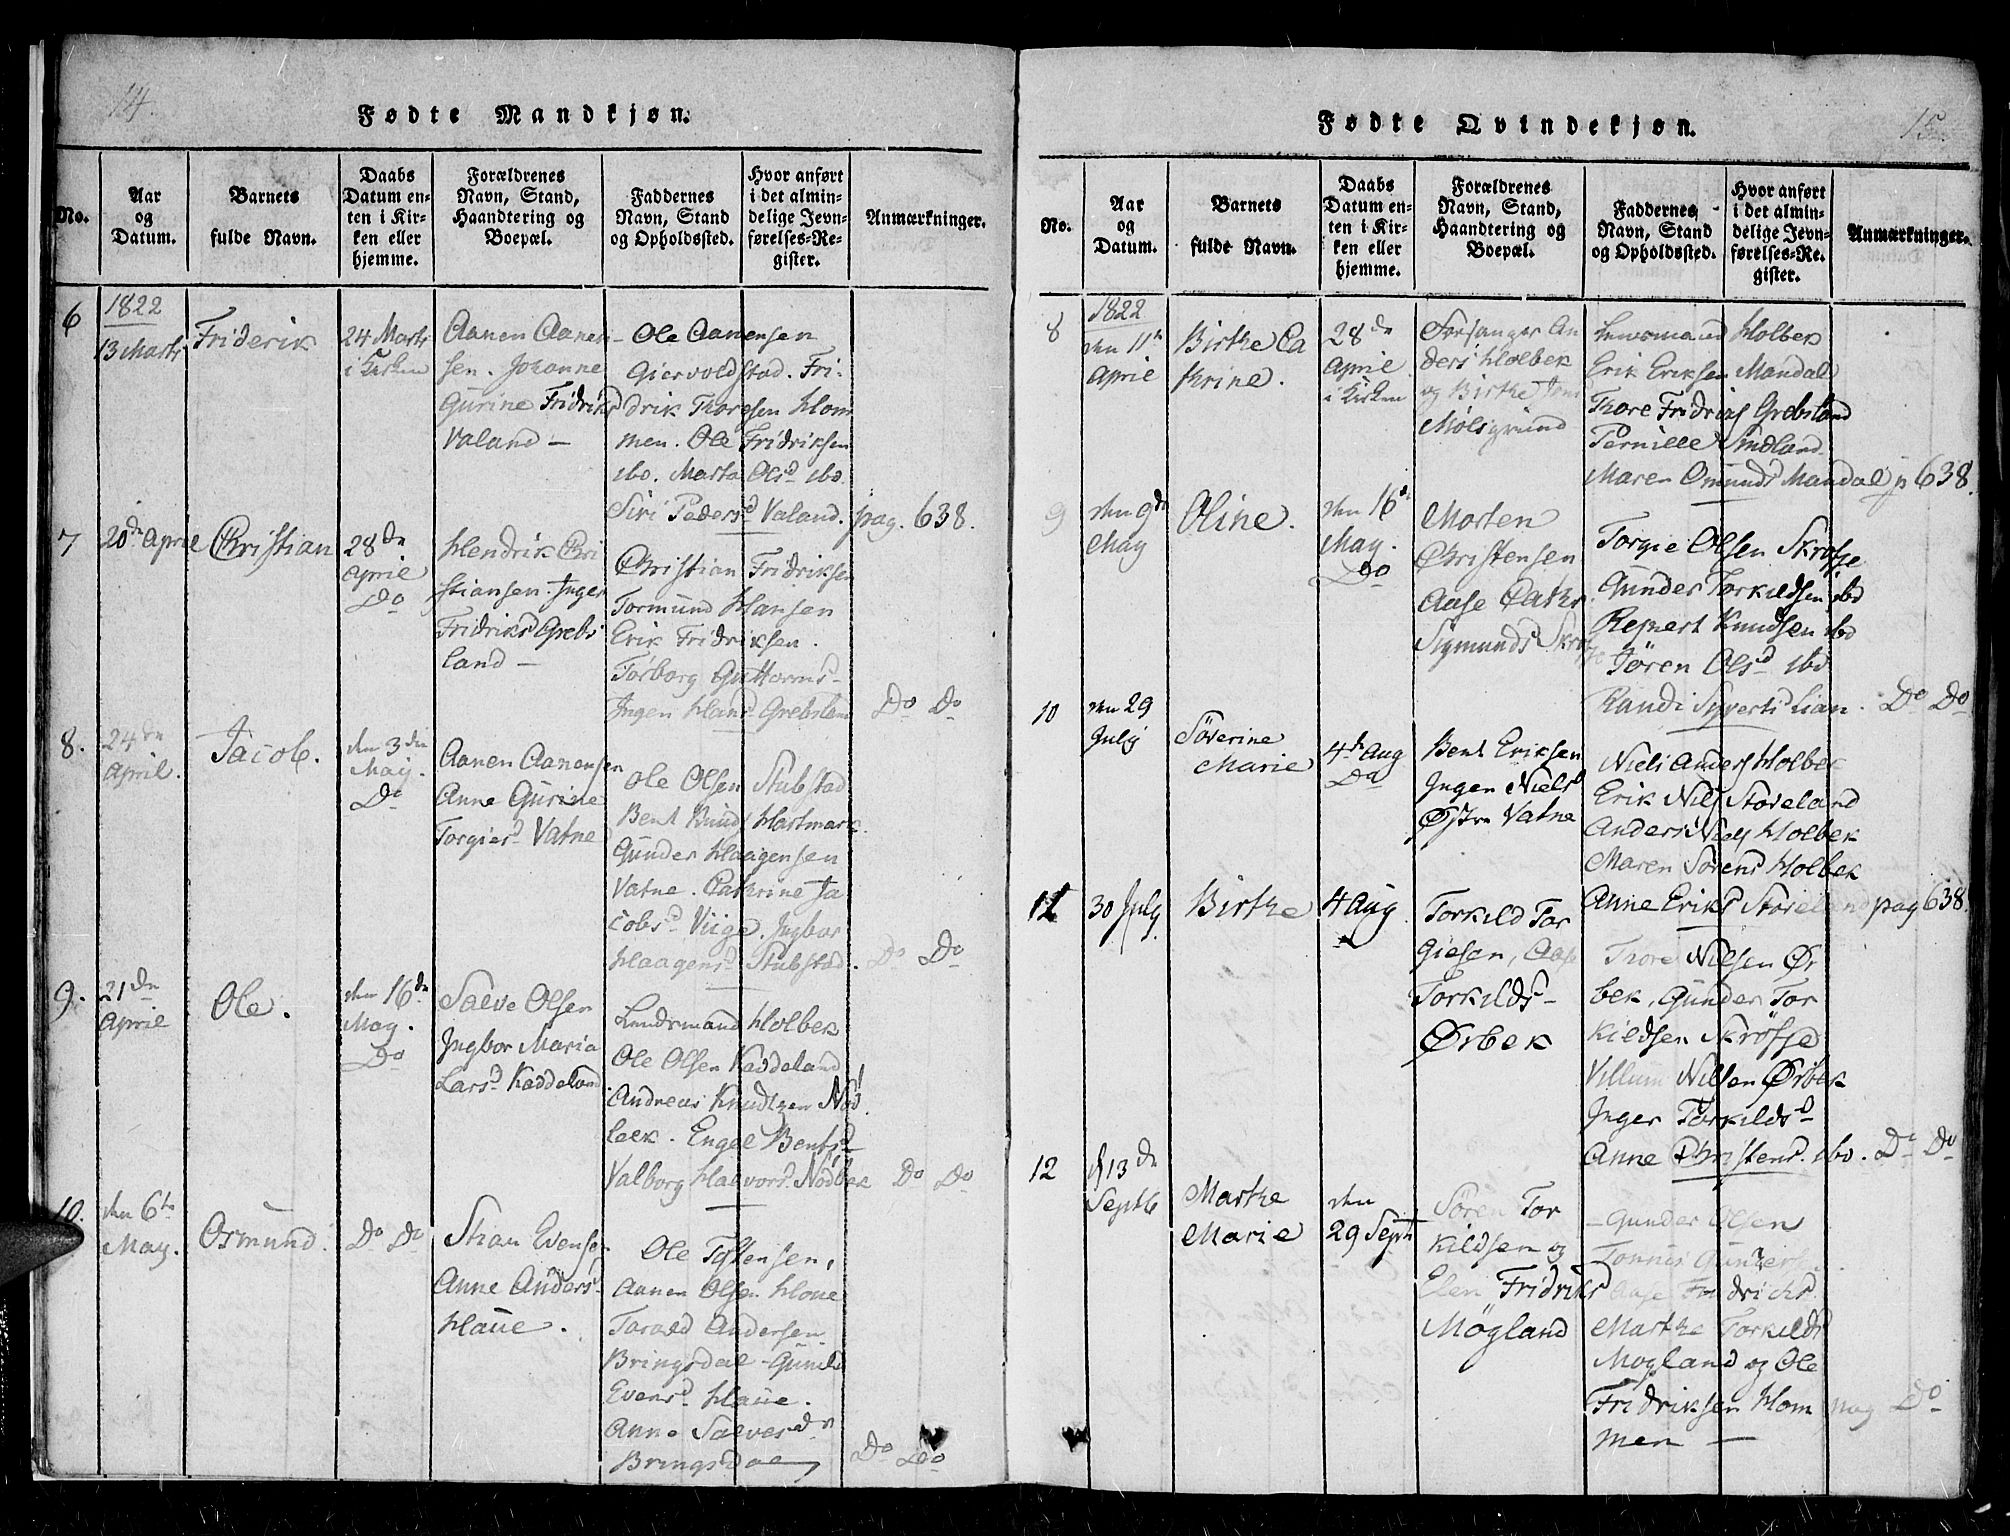 14.
Fødte Mandkjøn.
No.
Aar
og
Datum.
Barnets
fulde Navn.
Daabs
Datum en-
ten i Kir-
ken eller
hjemme.
Forældrenes
Navn, Stand,
Haandtering og
Boepæl.
Faddernes
Navn, Stand
og Opholdssted.
Hvor anført
i det almin-
delige Jevn-
førelses-Re-
gister.
Anmærkninger.
6
1822
13 Marts
Friderik
24 Marts
i Kirken
Aanen Aanen
sen. Johanne
Gurine Fridriksd
Valand —
Ole Aanensen
Giervoldstad. Fri-
drik Thoresen Hom
men. Ole Fridriksen
ibd. Marta Olsd ibd.
Siri Pedersd Valand.
pag. 638.
7
20de April
Christian
28de
April
Do
Hendrik Chri
stiansen. Inger
Fridriksd Grebs
land —
Christian Fridriksen
Tormund Hansen
Erik Fridriksen.
Torborg Guttorms-
Ingen Hansd Grebsland
Do Do
8.
24de
April.
Jacob.
den 3die
May.
Do
Aanen Aanensen
Anne Gurine
Torgiersd Vatne
Ole Olsen Stubstad
Bent Hartmark
Gunder Haagensen
Vatne. Cathrine Ja
cobsd Viige. Ingbor
Haagensd Stubstad.
Do Do
9.
21de
April
Ole.
den 16de
May.
Do
Salve Olsen
Ingbor Maria
Larsd Kaddeland
Lendsmand Holbek
Ole Olsen Kaddeland
Andreas Knudtzen Nød
bek. Engel Bentsd
Valborg Halvorsd Nødbek
Do Do
10.
den 6te
May.
Osmund.
Do Do
Evensen
Anne Anders-
Haue.
Ole Tostensen,
Aanen Olsen Houe
Tarald Andersen
Bringsdal - Gunild
Evensd Haue.
Anne Salvesdr
Bringsdal
Do Do
15.
Fødte Qvindekjøn.
No.
Aar
og
Datum.
Barnets
fulde Navn.
Daabs
Datum en-
ten i Kir-
ken eller
hjemme.
Forældrenes
Navn, Stand,
Haandtering og
Boepæl.
Faddernes
Navn, Stand
og Opholdssted.
Hvor anført
i det almin-
delige Jevn-
førelses-Re-
gister.
Anmærkninger.
8
1822
den 11te
April
Birthe Ca
thrine.
28de
April
i Kirken
Forsanger An
ders Holbek
og Birthe
Mølsgrund
Lensmand Holbek
Erik Eriksen Mandal
Thore Fridrigs Grebsland
Pernille Lindland
Maren Omunds Mandal p 638.
9
den 9de
May
Oline.
den 16de
May.
Do
Morten
Christensen
Aase Cathr
Sigmundsd Skrøfje
Torgie Olsen Skrøfje
Gunder Torkildsen ibd
Repert Knudsen ibd
Jøren Olsd ibd
Randi Syverts Lian.
Do Do
10
den 29
July
Søverine
Marie
4de Aug
Do
Bent Eriksen
Ingen Nielsd
Østre Vatne
Niels Anders Holbek
Erik Nils Støreland
Anders Niels Holbek
Maren Sørens Holbek
Anne Eriksd Støreland pag 638.
11
30 July
Birthe
4 Aug.
Torkild Tor
giesen, Aase
Torkilds-
Ørbek
Thore Nilsen Ør
bek, Gunder Tor
kildsen Skrøfje
Villum Nilsen Ørbek
Inger Torkildsd
Anne Christensd. ibd.
Do Do
12
d 13de
Septb
Marthe
Marie
den
29 Sept
Søren Tor
kildsen og
Elen Fridriksd
Møgland
— Gunder Olsen
Tønnes Gundersen
Aase Fridriksd
Marthe Torkildsd
Møgland og Ole
Fridriksen Hom
men —
pag Do